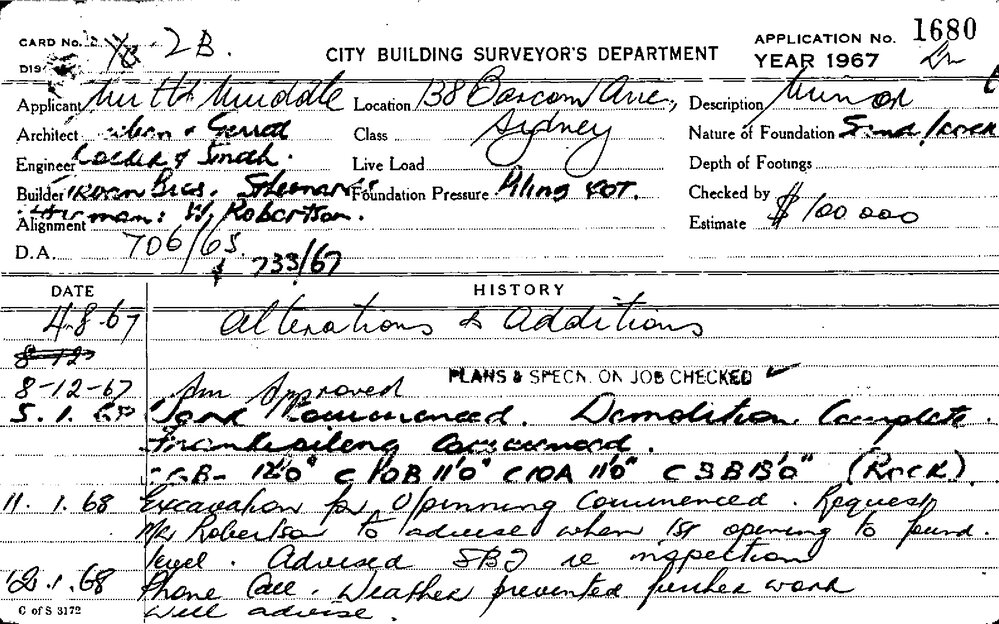 CARD No. 2B.
CITY BUILDING SURVEYOR'S DEPARTMENT
APPLICATION No. 1680
DIS
YEAR 1967
Applicant Location 138 Barcom Ave., Description
Sydney
Architect Class Nature of Foundation Sand/rock
Engineer & Smith. Live Load Depth of Footings
Builder Bros. Foundation Pressure Piling Checked by
: W Robertson.
Alignment Estimate $100 000
D.A. 706/65
& 733/67
DATE HISTORY
4-8-67 Alterations & additions
8-12
8-12-67 Approved PLANS & SPECN. ON JOB CHECKED ✓
5.1.68 Work Commenced. Demolition Complete.
commenced.
12'0" C10B 11'0" C10A 11'0" C 3B 13'0" (Rock).
11.1.68 Excavation for U/pinning Commenced. Request
Mr Robertson to advise when 1st opening to found.
level. Advised SBI re inspection
12.1.68 Phone Call. Weather prevented further work
will advise.
C of S 3172